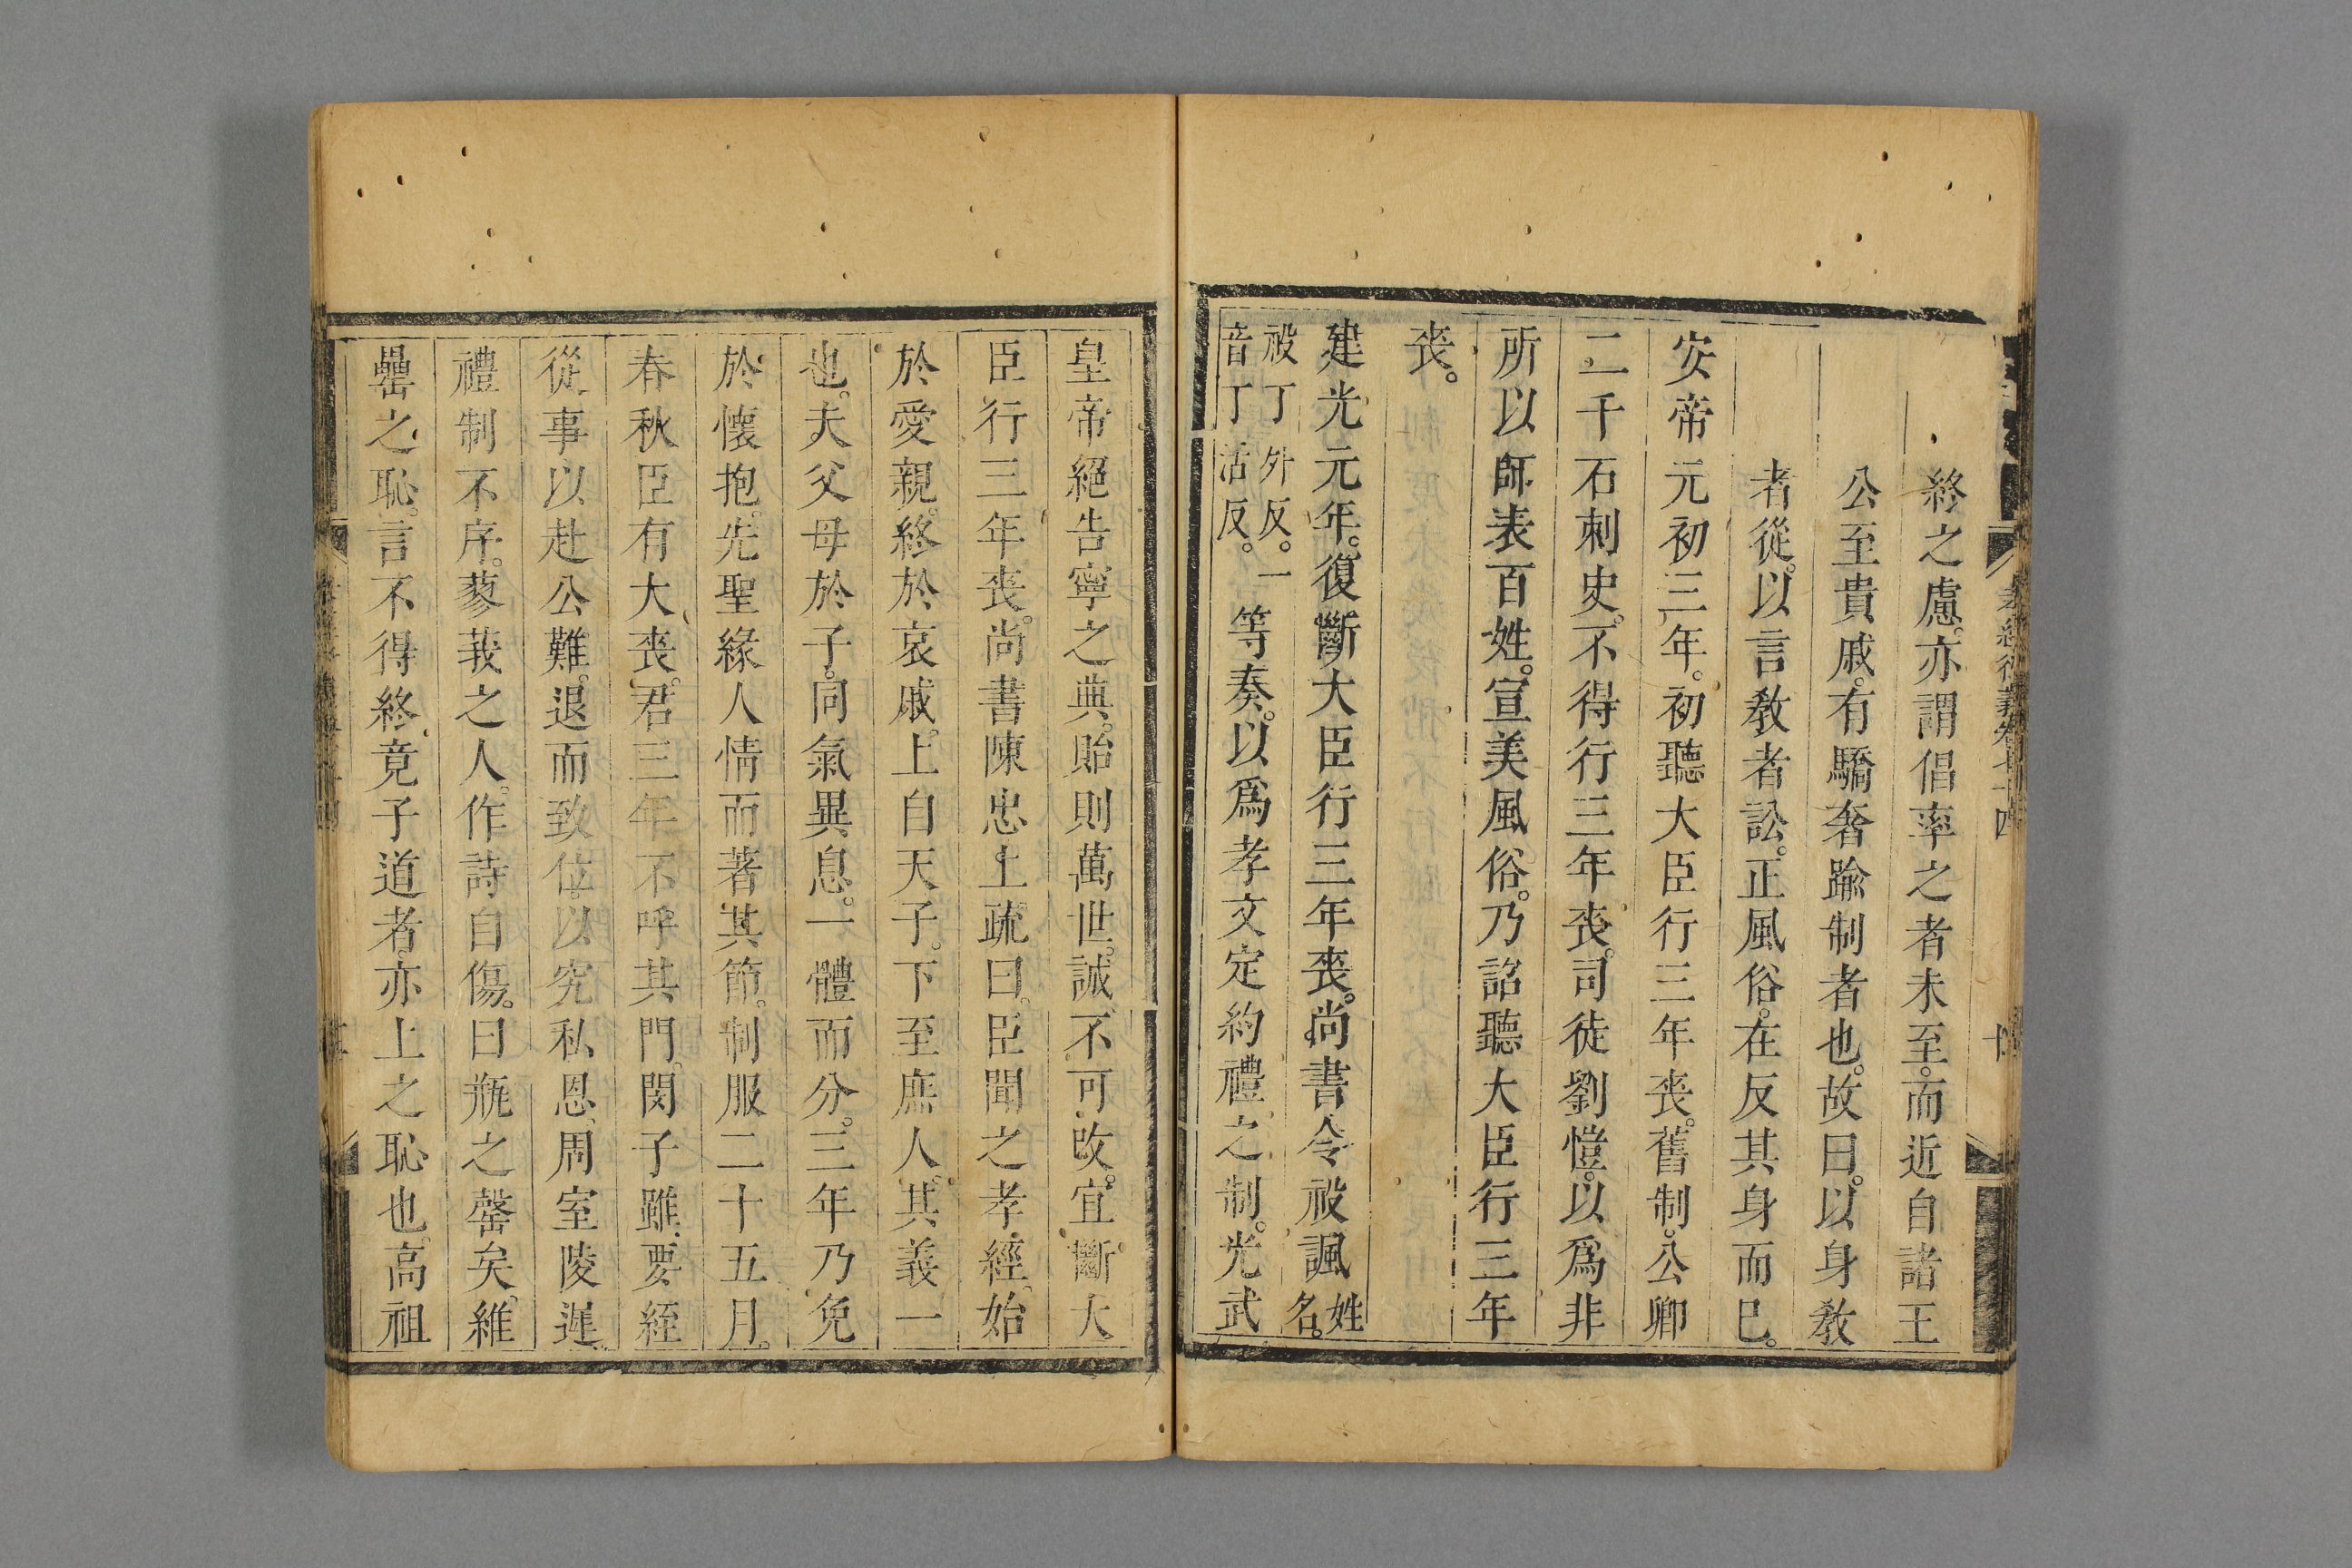 孝經衍義卷七十四
終之慮。亦謂倡率之者未至。而近自諸王
公至貴戚。有驕奢踰制者也。故曰。以身教
者從。以言教者訟。正風俗。在反其身而已。
安帝元初三年。初聽大臣行三年喪。舊制。公卿
二千石刺史。不得行三年喪。司徒劉愷。以爲非
所以師表百姓。宣美風俗。乃詔聽大臣行三年
喪。
建光元年。復斷大臣行三年喪。尚書令祋諷姓名。
祋丁外反。一音丁活反。等奏。以爲孝文定約禮之制。光武
皇帝絕告寧之典。貽則萬世。誠不可改。宜斷大
臣行三年喪。尚書陳忠上疏曰。臣聞之孝經。始
於愛親。終於哀戚。上自天子。下至庶人。其義一
也。夫父母於子。同氣異息。一體而分。三年乃免
於懷抱。先聖緣人情而著其節。制服二十五月。
春秋臣有大喪。君三年不呼其門。閔子雖要絰
從事以赴公難。退而致位。以究私恩。周室陵遲。
禮制不序。蓼莪之人。作詩自傷。曰瓶之罄矣。維
罍之恥。言不得終竟子道者。亦上之恥也。高祖